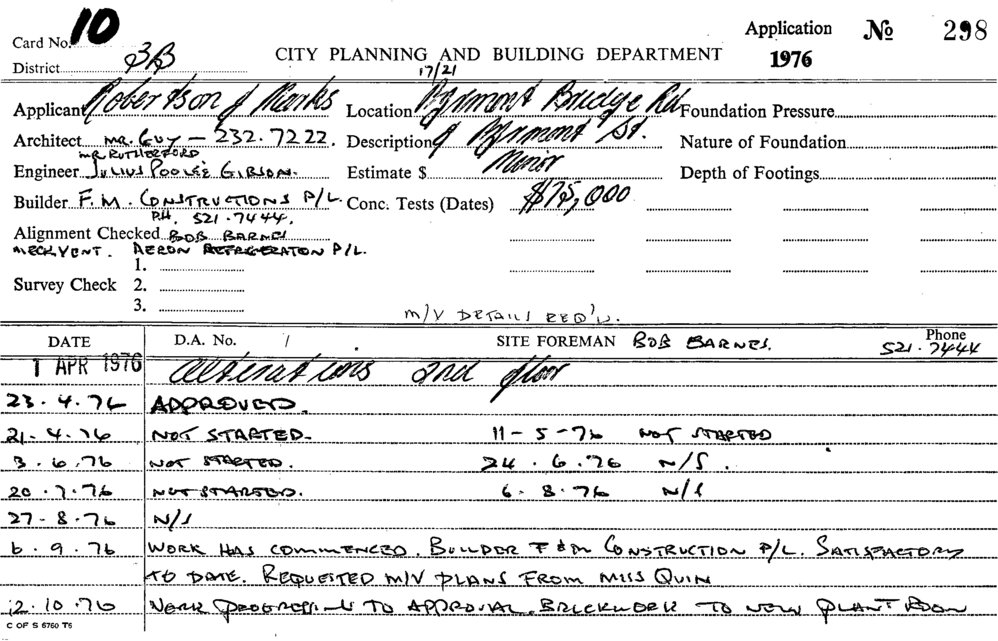 Card No. 10
Application No 298
District 3B
CITY PLANNING AND BUILDING DEPARTMENT
1976
17/21
Applicant Robertson & Marks Location Pyrmont Bridge Rd Foundation Pressure
Architect MR. GUY - 232.7222. Description & Pyrmont St. Nature of Foundation
MR RUTHERFORD
Engineer JULIUS POOLE & GIBSON. Estimate $ Minor Depth of Footings
Builder F.M. CONSTRUCTIONS P/L. Conc. Tests (Dates) $75,000
PH. 521.7444.
Alignment Checked BOB BARNES
MECH VENT. AERON REFRIGERATON P/L.
1.
Survey Check 2.
3.
M/V DETAILS REQ'D.
DATE D.A. No. / SITE FOREMAN BOB BARNES. Phone 521.7444
1 APR 1976 alterations 2nd floor
23.4.76 APPROVED.
21.4.76 NOT STARTED. 11-5-76 NOT STARTED
3.6.76 NOT STARTED. 24.6.76 N/S.
20.7.76 NOT STARTED. 6.8.76 N/S
27-8.76 N/S
6.9.76 WORK HAS COMMENCED. BUILDER F & M CONSTRUCTION P/L. SATISFACTORY
TO DATE. REQUESTED M/V PLANS FROM MISS QUIN
12.10.76 WORK PROGRESSING TO APPROVAL. BRICKWORK TO NEW PLANT ROOM
C OF S 6760 T6